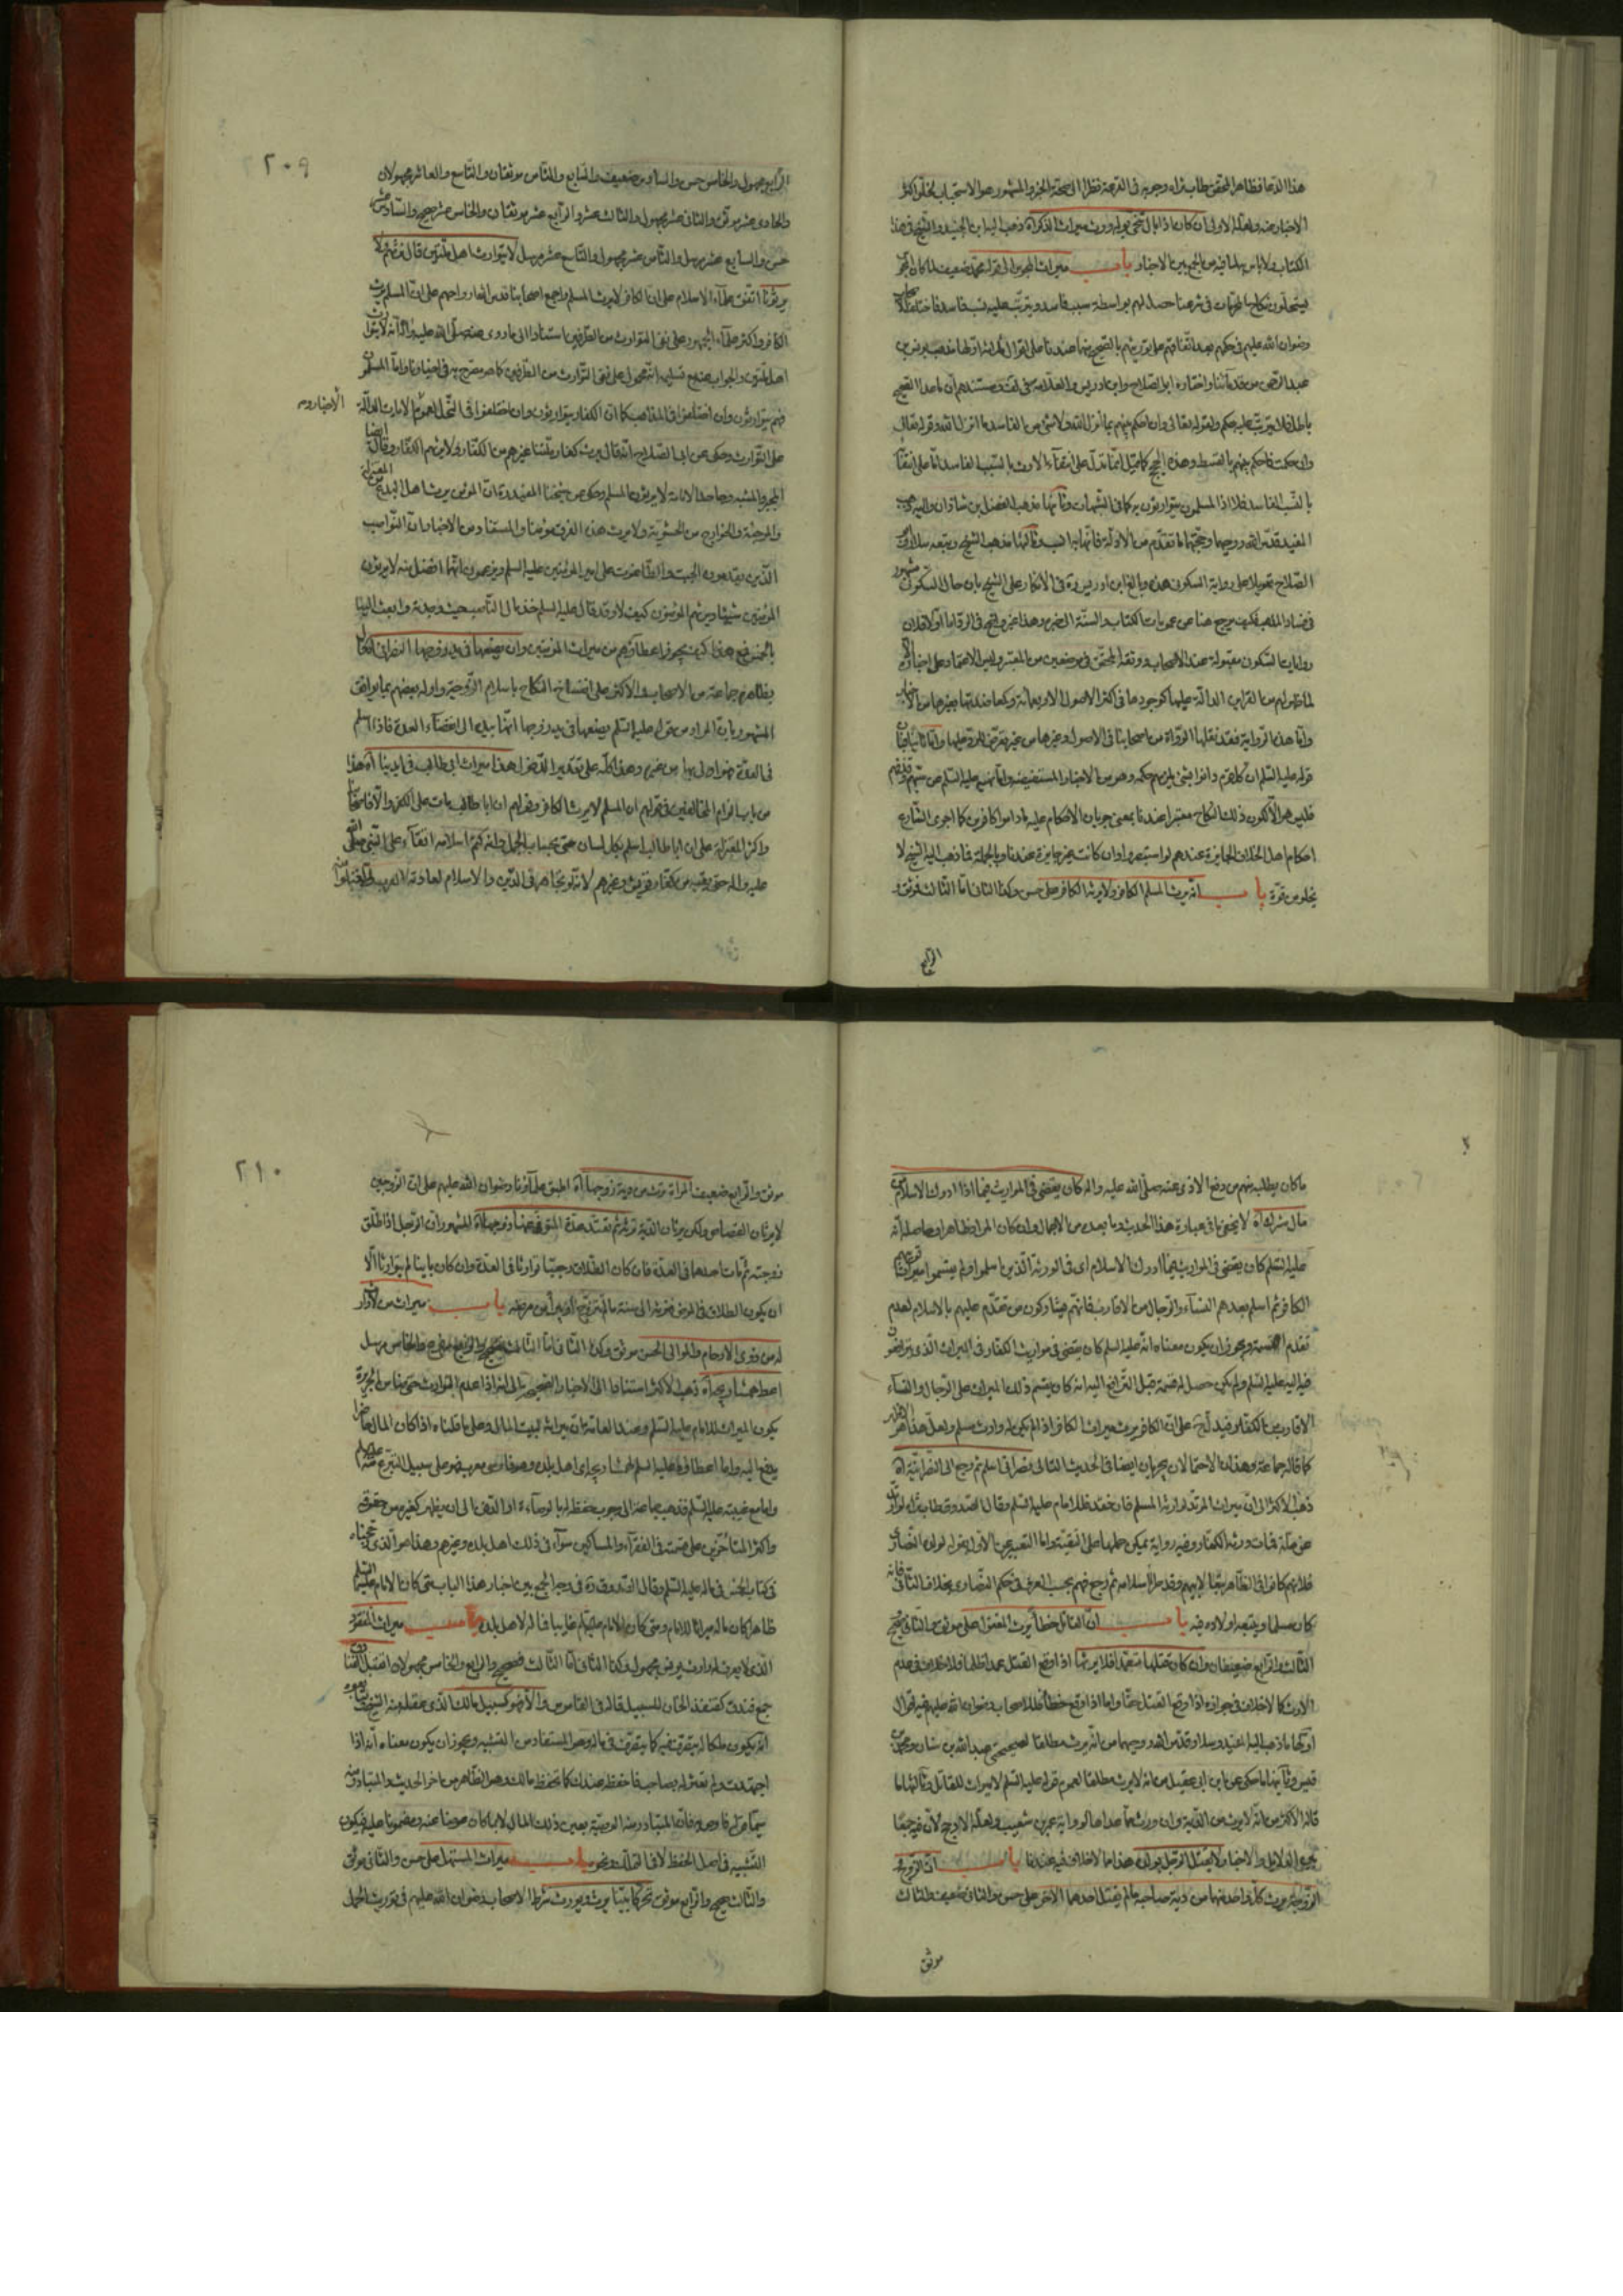 هذا الدعا فظاهر المحقق طاب ثراه وجوبه في القرعة نظرا الى صحة الخبر والمشهور هو الاستحباب لخلو اكثر
الاخبار عنه ولعله الاولى ان كان اذا بال نحى بوله ورث ميراث الذكر اه ذهب اليه ابن الجنيد والشيخ في هذا
الكتاب ولا باس به لما فيه من الجمع بين الاخبار باب ميراث المجوس الى قوله محمد ضعيف لما كان المجوس
يستحلون نكاح المحرمات في شرعنا حصل لهم بواسطة سبب فاسد ويترتب عليه نسب فاسد فاختلف الاصحاب
رضوان الله عليهم في حكمهم بعد اتفاقهم على توريثهم بالصحيح منهما عندنا على اقوال ثلاثة اولها مذهب يونس بن
عبد الرحمن من قدمائنا واختاره ابو الصلاح وابن ادريس والعلامة في لف ومستندهم ان ما عدا الصحيح
باطل فلا يترتب عليه حكم ولقوله تعالى وان احكم بينهم بما انزل الله ولا شيء من الفاسد ما انزل الله وقوله تعالى
وان حكمت فاحكم بينهم بالقسط وهذه الحجج كما قيل انما تدل على انتفاء الارث بالسبب الفاسد لا على انتفائه
بالنسب الفاسد فلا اذا المسلمون يتوارثون به كما في الشبهات وثانيها مذهب الفضل بن شاذان واليه ذهب
المفيد قدس الله روحهما وحجتهما ما تقدم من الادلة فانها لم وثالثها مذهب الشيخ وتبعه سلار وابو
الصلاح تعويلا على رواية السكوني هذه وبالغ ابن ادريس ره في الانكار على الشيخ بان حال السكوني مشهور
في فساد المذهب فكيف يرجع هنا عن عمومات الكتاب والسنة الى خبره وهذا غير واقع في الرد اما اولا فلان
روايات السكوني مقبولة عند الاصحاب ووثقه المحقق في موضعين من المعتبر وليس الاعتماد على اخباره الا
لما ظهر لهم من القراين الدالة عليها كوجودها في اكثر الاصول الاربعمائة وكمعاضدتها بغيرها من الاخبار
واما هذه الرواية فقد نقلها الرواة من اصحابنا في الاصول وغيرها من غير تعرض للرد عليها واما ثانيا فلان
قوله عليه السلم ان كل قوم دانوا بشيء يلزمهم حكمه وهو من الاخبار المستفيضة ولما نهى عليه السلم عن سبهم وقذفهم
فليس هو الا لكون ذلك النكاح معتبرا عندنا بمعنى جريان الاحكام عليه ما داموا كافرين كما اجرى الشارع
احكام اهل الخلاف الجايزة عندهم لو استبصروا وان كانت غير جايزة عندنا وبالجملة فما ذهب اليه الشيخ لا
يخلو من قوة باب انه يرث المسلم الكافر ولا يرثه الكافر على حسن وكذا الثاني اما الثالث فموثق و
الرابع
٢٠٩
الرابع مجهول والخامس حسن والسادس ضعيف والسابع والثامن موثقان والتاسع والعاشر مجهولان
والحادي عشر موثق والثاني عشر مجهول والثالث عشر والرابع عشر موثقان والخامس عشر صحيح والسادس عشر
حسن والسابع عشر مرسل والثامن عشر مجهول والتاسع عشر مرسل لا يتوارث اهل ملتين قال نرثهم ولا
يرثونا اتفق علماء الاسلام على ان الكافر لا يرث المسلم واجمع اصحابنا قدس الله ارواحهم على ان المسلم يرث
الكافر واكثر علماء الجمهور على نفي التوارث من الطرفين استنادا الى ما روى عنه صلى الله عليه واله انه لا يتوارث
اهل ملتين والجواب عنه مع تسليمه انه محمول على نفي التوارث من الطرفين كما هو مصرح به في اخبارنا واما المسلمون
فهم يتوارثون وان اختلفوا في المذاهب كما ان الكفار يتوارثون وان اختلفوا في النحل لعموم الايات الدالة الاخبار وية
على التوارث وحكى عن ابي الصلاح انه قال يرث كفار ملتنا غيرهم من الكفار ولا يرثهم الكفار وقال ايضا
المجبر والمشبه وجاحد الامامة لا يرثون المسلم وحكى عن شيخنا المفيد ره ان المؤمن يرث اهل البدع من المعتزلة
والمرجئة والخوارج من الحشوية ولا يرث هذه الفرق مؤمنا والمستفاد من الاخبار ان النواصب
الذين يقدمون الجبت والطاغوت على امير المؤمنين عليه السلم ويزعمون انهما افضل منه لا يرثون
المؤمنين شيئا ويرثهم المؤمنون كيف لا وقد قال عليه السلم خذ مال الناصب حيث وجدته وابعث الينا
بالخمس فمع هذا كيف يجوز اعطاؤهم من ميراث المؤمنين وان بضعها في يد زوجها النصراني اه عمل
بظاهره جماعة من الاصحاب والاكثر على انفساخ النكاح باسلام الزوجية واوله بعضهم بما يوافق
المشهور بان المراد من قوله عليه السلم بضعها في يد زوجها انها بيده الى انقضاء العدة فاذا اسلم
في العدة فهو املك بها من غيره وهذا كله على تقدير الدخول هذا ميراث ابي طالب في ايدينا اه هذا
من باب الزام المخالفين في قولهم ان المسلم لا يرث الكافر وقولهم ان ابا طالب مات على الكفر والا فاصحابنا
واكثر المعتزلة على ان ابا طالب اسلم بكل لسان حتى بحساب الجمل وانه كتم اسلامه اتقاء على النبي صلى الله
عليه واله حتى يقيه من كفار قريش وغيرهم لانه لو تجاهر في الدين والاسلام لعادته العرب فلم يقبلوا منه
ما كان يطلبه منهم من دفع الاذى عنه صلى الله عليه واله كان يقضى في المواريث فيما اذا ادرك الاسلام
مال مشرك اه لا يخفى ما في عبارة هذا الحديث وما بعده من الاجمال وان كان المراد ظاهرا وحاصله انه
عليه السلم كان يقضى في المواريث فيما ادرك الاسلام اي في الورثة الذين اسلموا ولم يقسموا ميراث
الكافر ثم اسلم بعدهم النساء والرجال من الاقارب فانهم يشاركون من تقدم عليهم بالاسلام لعدم
تقدم القسمة ويجوز ان يكون معناه انه عليه السلم كان يقضى في مواريث الكفار في الميراث الذي يترافعون
فيه اليه عليه السلم ولم يكن حصل له قسمة قبل الترافع اليه انه كان يقسم ذلك الميراث على الرجال والنساء
الاقارب من الكفار فيدل ح على ان الكافر يرث ميراث الكافر اذا لم يكن له وارث مسلم ولعل هذا هو الاظهر
كما قاله جماعة وهذان الاحتمالان يجريان ايضا في الحديث التالي نصراني اسلم ثم رجع الى النصرانية اه
ذهب الاكثر الى ان ميراث المرتد لوارثه المسلم فان فقد فللامام عليه السلم وقال الصدوق طاب ثراه لو ارتد
عن ملة فمات ورثه الكفار وفيه رواية يمكن حملها على التقية واما التعبير عن الاول بقوله لولده النصارى
فلانهم كانوا في الظاهر تبعا لابيهم وقد طرأ اسلامه ثم رجع فهم بحسب العرف في حكم النصارى بخلاف الثاني فانه
كان مسلما ويتبعه اولاده فيه باب ان القاتل خطأ يرث المقتول على موثق والثاني صحيح
الثالث والرابع ضعيفان وان كان قتلها متعمدا فلا يرثها اذا وقع القتل عمدا ظلما فلا خلاف في عدم
الارث كما لا خلاف في جوازه اذا وقع القتل حقا واما اذا وقع خطأ فللاصحاب رضوان الله عليهم فيه اقوال
اولها ما ذهب اليه المفيد وسلار قدس الله روحيهما من انه يرث مطلقا لصحيحتي عبد الله بن سنان ومحمد بن
قيس وثانيها ما حكى عن ابن ابي عقيل من انه لا يرث مطلقا لعموم قوله عليه السلم لا ميراث للقاتل وثالثها ما
قاله الاكثر من انه لا يرث من الدية وان ورث ما عداها لرواية عمرو بن شعيب ولعله الاوجه لان فيه جمعا
بين الدلايل والاخبار لا يقتل الرجل بولده هذا مما لا خلاف فيه عندنا باب ان الزوج و
الزوجة يرث كل واحد منهما من دية صاحبه ما لم يقتل احدهما الاخر على حسن والثاني ضعيف والثالث
موثق
٢١٠
موثق والرابع ضعيف المراة ترث من دية زوجها اه اطبق علماؤنا رضوان الله عليهم على ان الزوجين
لا يرثان القصاص ولكن يرثان الدية ترثه ثم تعتد عدة المتوفى عنها زوجها اه المشهور ان الرجل اذا طلق
زوجته ثم مات احدهما في العدة فان كان الطلاق رجعيا توارثا في العدة وان كان باينا لم يتوارثا الا
ان يكون الطلاق في المرض فترثه الى سنة ما لم تتزوج او يبرأ من مرضه باب ميراث من لا وارث
له من ذوي الارحام والموالى الحسن موثق وكذا الثاني اما الثالث فصحيح والرابع والخامس مرسل
اعط همشاريجه اه ذهب الاكثر استنادا الى الاخبار الصحيحة الى انه اذا عدم الوارث حتى ضامن الجريرة
يكون الميراث للامام عليه السلم وعند العامة ان ميراثه لبيت المال وعلى ما قلناه اذا كان المال حاضرا
يدفع اليه واما اعطاؤه عليه السلم همشاريجه اي اهل بلده وهو فارسى معرب فهو على سبيل التبرع منه عليه السلم
واما مع غيبته عليه السلم فذهب جماعة الى وجوب حفظه له بالوصاءة او الدفن الى ان يظهر كغيره من حقوقه
واكثر المتاخرين على قسمته في الفقراء والمساكين سواء في ذلك اهل بلده وغيرهم وهذا هو الذي رجحناه
في كتاب الخمس في ماله عليه السلم وقال الصدوق ره في وجه الجمع بين اخبار هذا الباب متى كان الامام عليه السلم
ظاهرا كان ماله ميراثا للامام ومتى كان الامام عليه السلم غايبا فماله لاهل بلده باب ميراث المفقود
الذي لا يعرف له وارث يونس مجهول وكذا الثاني اما الثالث فصحيح والرابع والخامس مجهولان
جمع فندق كقنفذ الخان للسبيل قاله في القاموس والا فهو كسبيل مالك الذي عقله منه الشيخ
انه يكون ملكا له يتصرف فيه كما يتصرف في ماله وهو المستفاد من التشبيه ويجوز ان يكون معناه انه اذا
اجتهدت ولم تعثر له بصاحب فاحفظه عندك كما تحفظ مالك وهو الظاهر من اخر الحديث والمتبادر منه
سيما قوله فاوص به فان المتبادر منه الوصية بعين ذلك المال لا ما كان عوضا عنه ومضمونا عليه فيكون
التشبيه في اصل الحفظ لا في التملك ونحوه باب ميراث المستهل على حسن والثاني موثق
والثالث صحيح والرابع موثق تحركا بينا يرث ويورث شرط الاصحاب رضوان الله عليهم في توريث الحمل